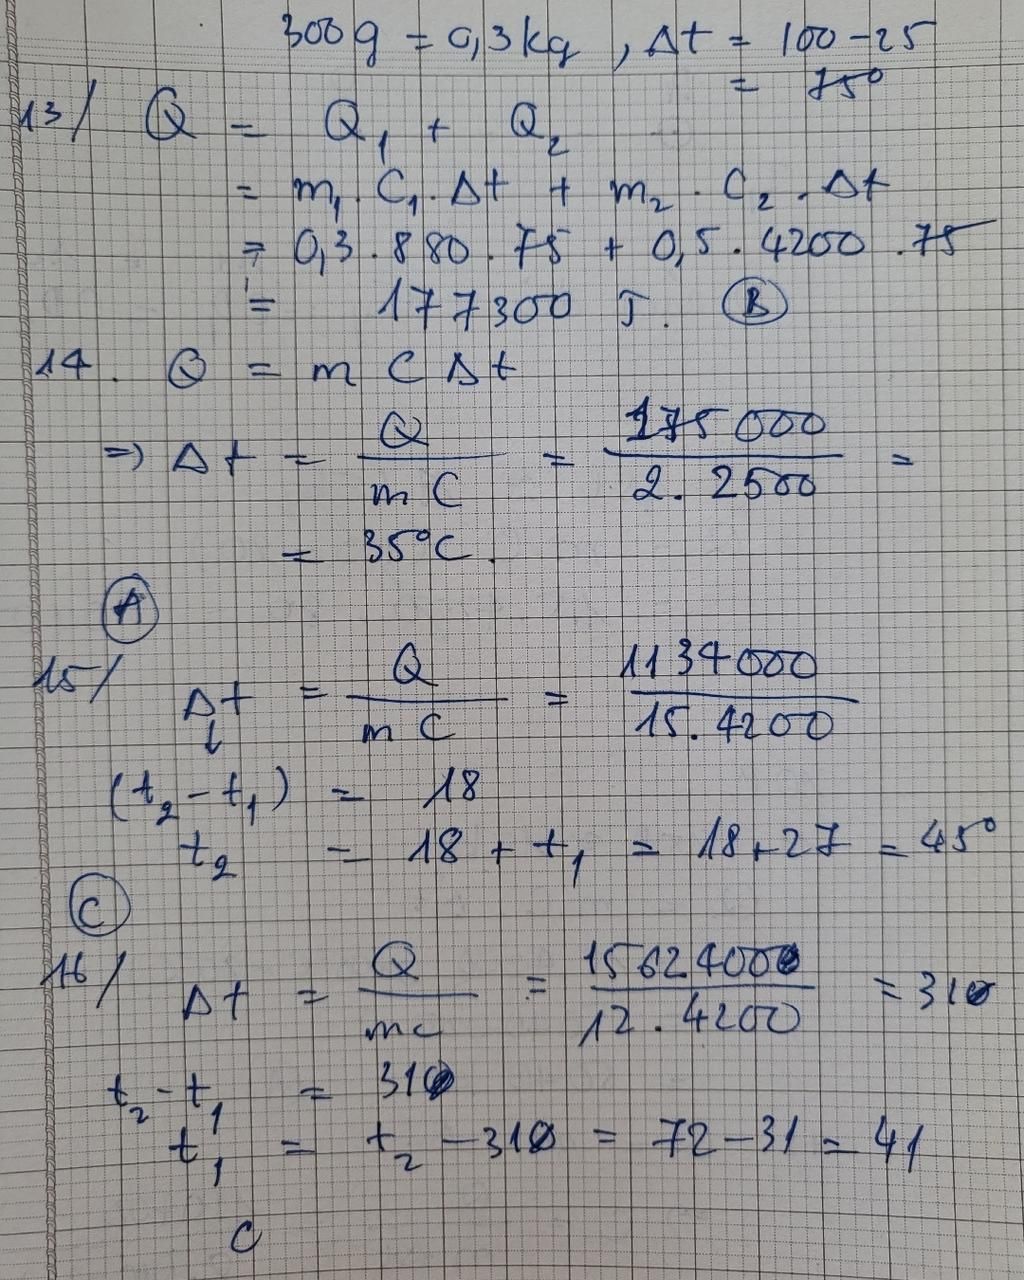 300g = 0,3kg , Δt = 100 - 25
= 75°
13/ Q = Q₁ + Q₂
= m₁ . C₁ . Δt + m₂ . C₂ . Δt
= 0,3 . 880 . 75 + 0,5 . 4200 . 75
= 177300 J. (B)
14. Q = m C Δt
=> Δt = Q / m C = 175000 / 2. 2500 =
= 35°C.
(A)
15/ Δt = Q / m C = 1134000 / 15. 4200
↓
(t₂ - t₁) = 18
t₂ = 18 + t₁ = 18 + 27 = 45°
(C)
16/ Δt = Q / mc = 1562400 / 12 . 4200 = 31
t₂ - t₁ = 31
t₁ = t₂ - 31 = 72 - 31 = 41
C